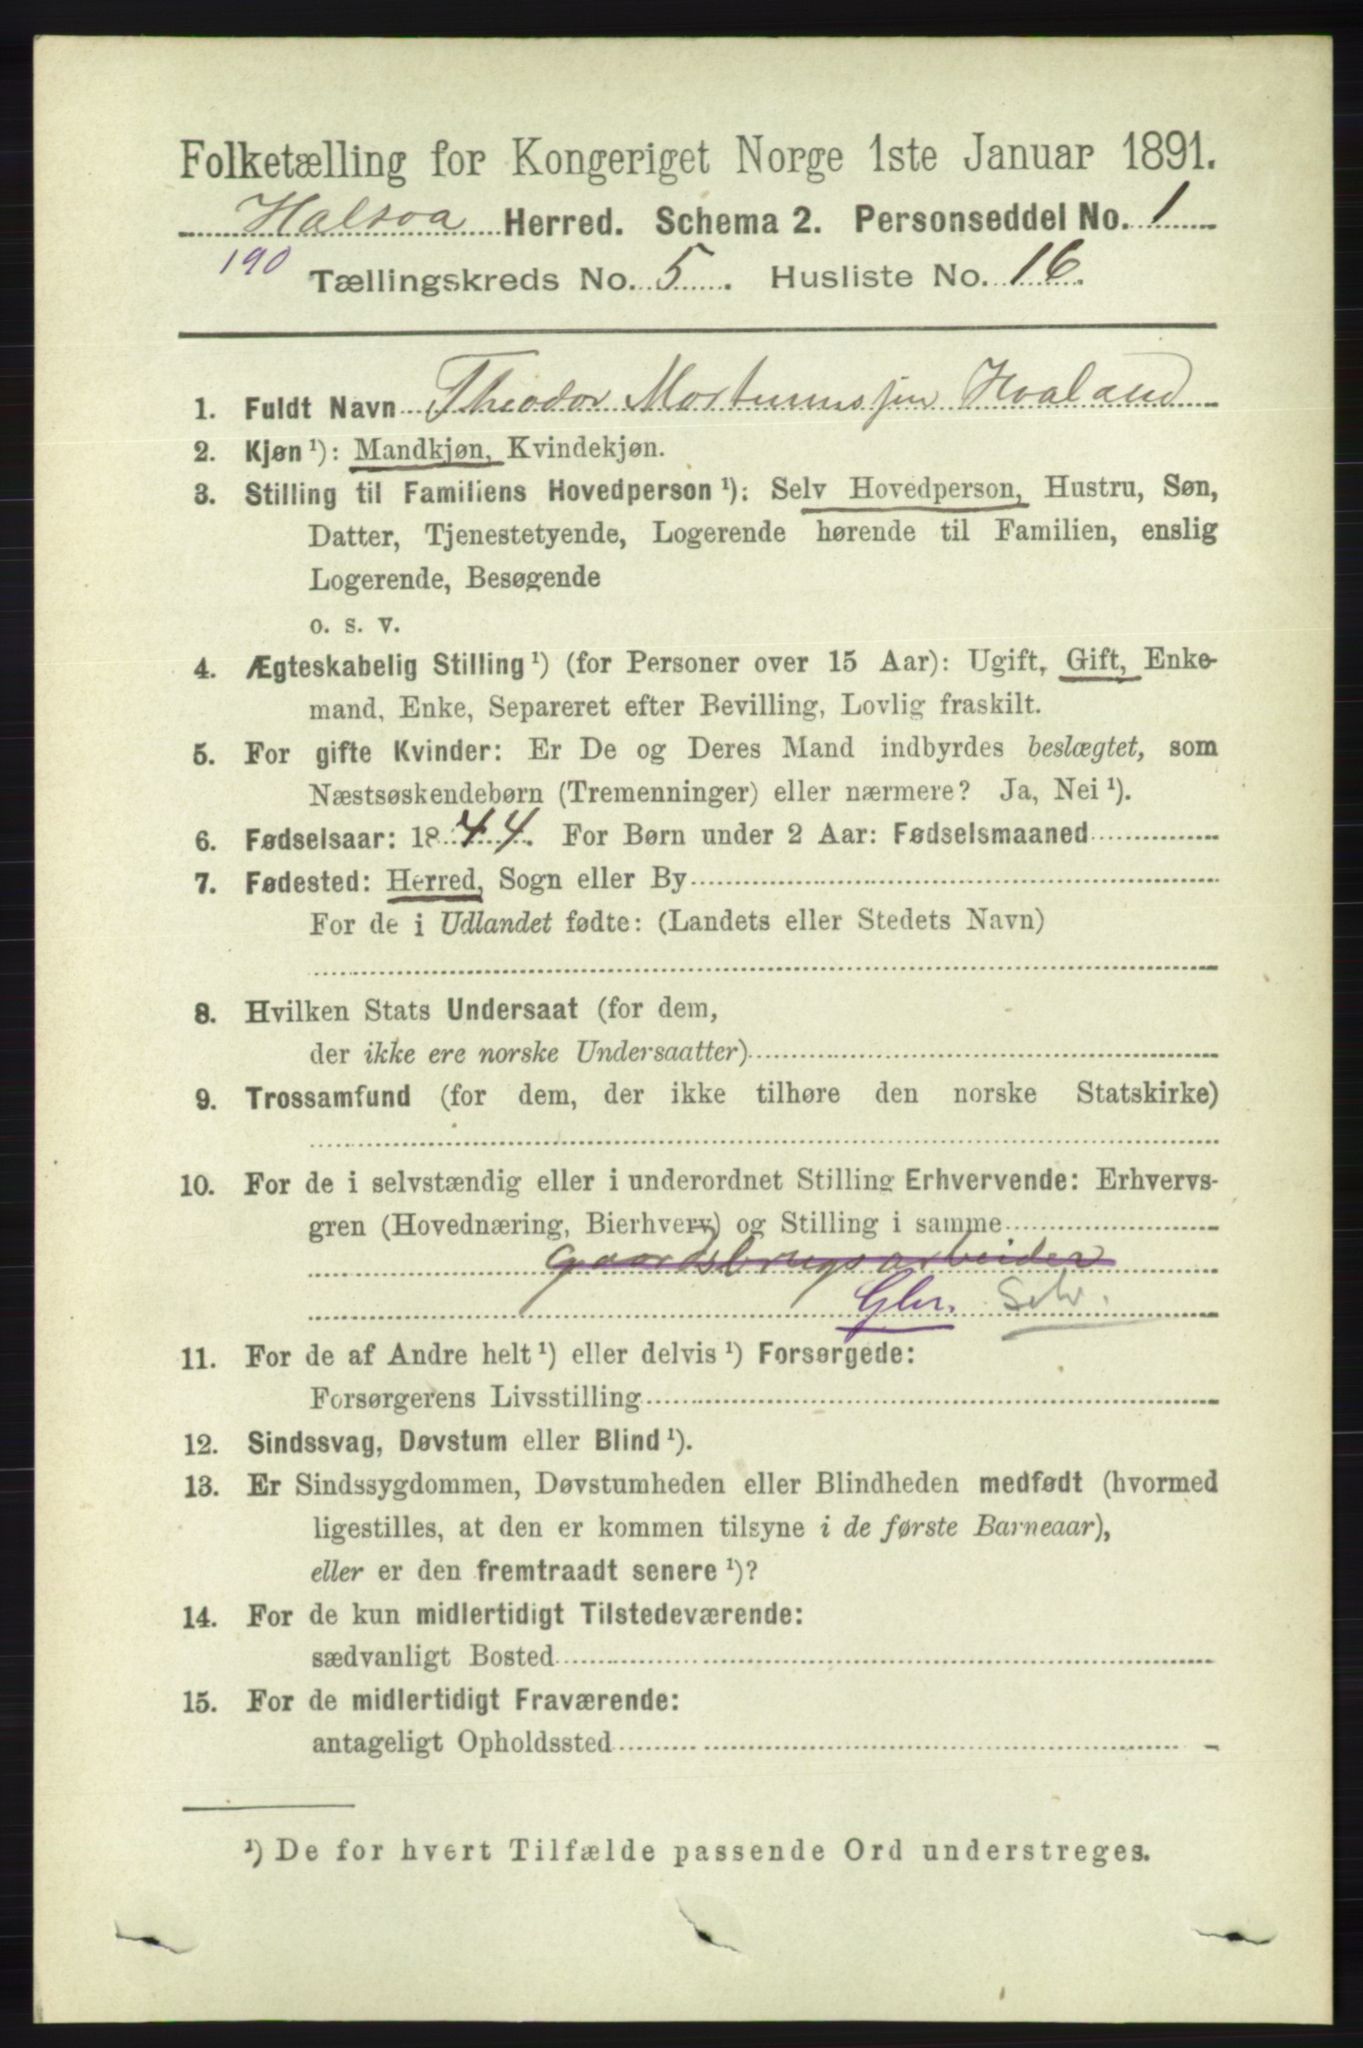 Folketælling for Kongeriget Norge 1ste Januar 1891.
Halsaa Herred. Schema 2. Personseddel No. 1
190
Tællingskreds No. 5. Husliste No. 16.
1. Fuldt Navn Theodor Mortinussen Hvaland
2. Kjøn ¹): Mandkjøn, Kvindekjøn.
3. Stilling til Familiens Hovedperson ¹): Selv Hovedperson, Hustru, Søn,
Datter, Tjenestetyende, Logerende hørende til Familien, enslig
Logerende, Besøgende
o. s. v.
4. Ægteskabelig Stilling ¹) (for Personer over 15 Aar): Ugift, Gift, Enke-
mand, Enke, Separeret efter Bevilling, Lovlig fraskilt.
5. For gifte Kvinder: Er De og Deres Mand indbyrdes beslægtet, som
Næstsøskendebørn (Tremenninger) eller nærmere? Ja, Nei ¹).
6. Fødselsaar: 1844. For Børn under 2 Aar: Fødselsmaaned
7. Fødested: Herred, Sogn eller By
For de i Udlandet fødte: (Landets eller Stedets Navn)
8. Hvilken Stats Undersaat (for dem,
der ikke ere norske Undersaatter)
9. Trossamfund (for dem, der ikke tilhøre den norske Statskirke)
10. For de i selvstændig eller i underordnet Stilling Erhvervende: Erhvervs-
gren (Hovednæring, Bierhverv) og Stilling i samme
gaardsbrugsarbeider
Gbr. Selv.
11. For de af Andre helt ¹) eller delvis ¹) Forsørgede:
Forsørgerens Livsstilling
12. Sindssvag, Døvstum eller Blind ¹).
13. Er Sindssygdommen, Døvstumheden eller Blindheden medfødt (hvormed
ligestilles, at den er kommen tilsyne i de første Barneaar),
eller er den fremtraadt senere ¹)?
14. For de kun midlertidigt Tilstedeværende:
sædvanligt Bosted
15. For de midlertidigt Fraværende:
antageligt Opholdssted
¹) De for hvert Tilfælde passende Ord understreges.